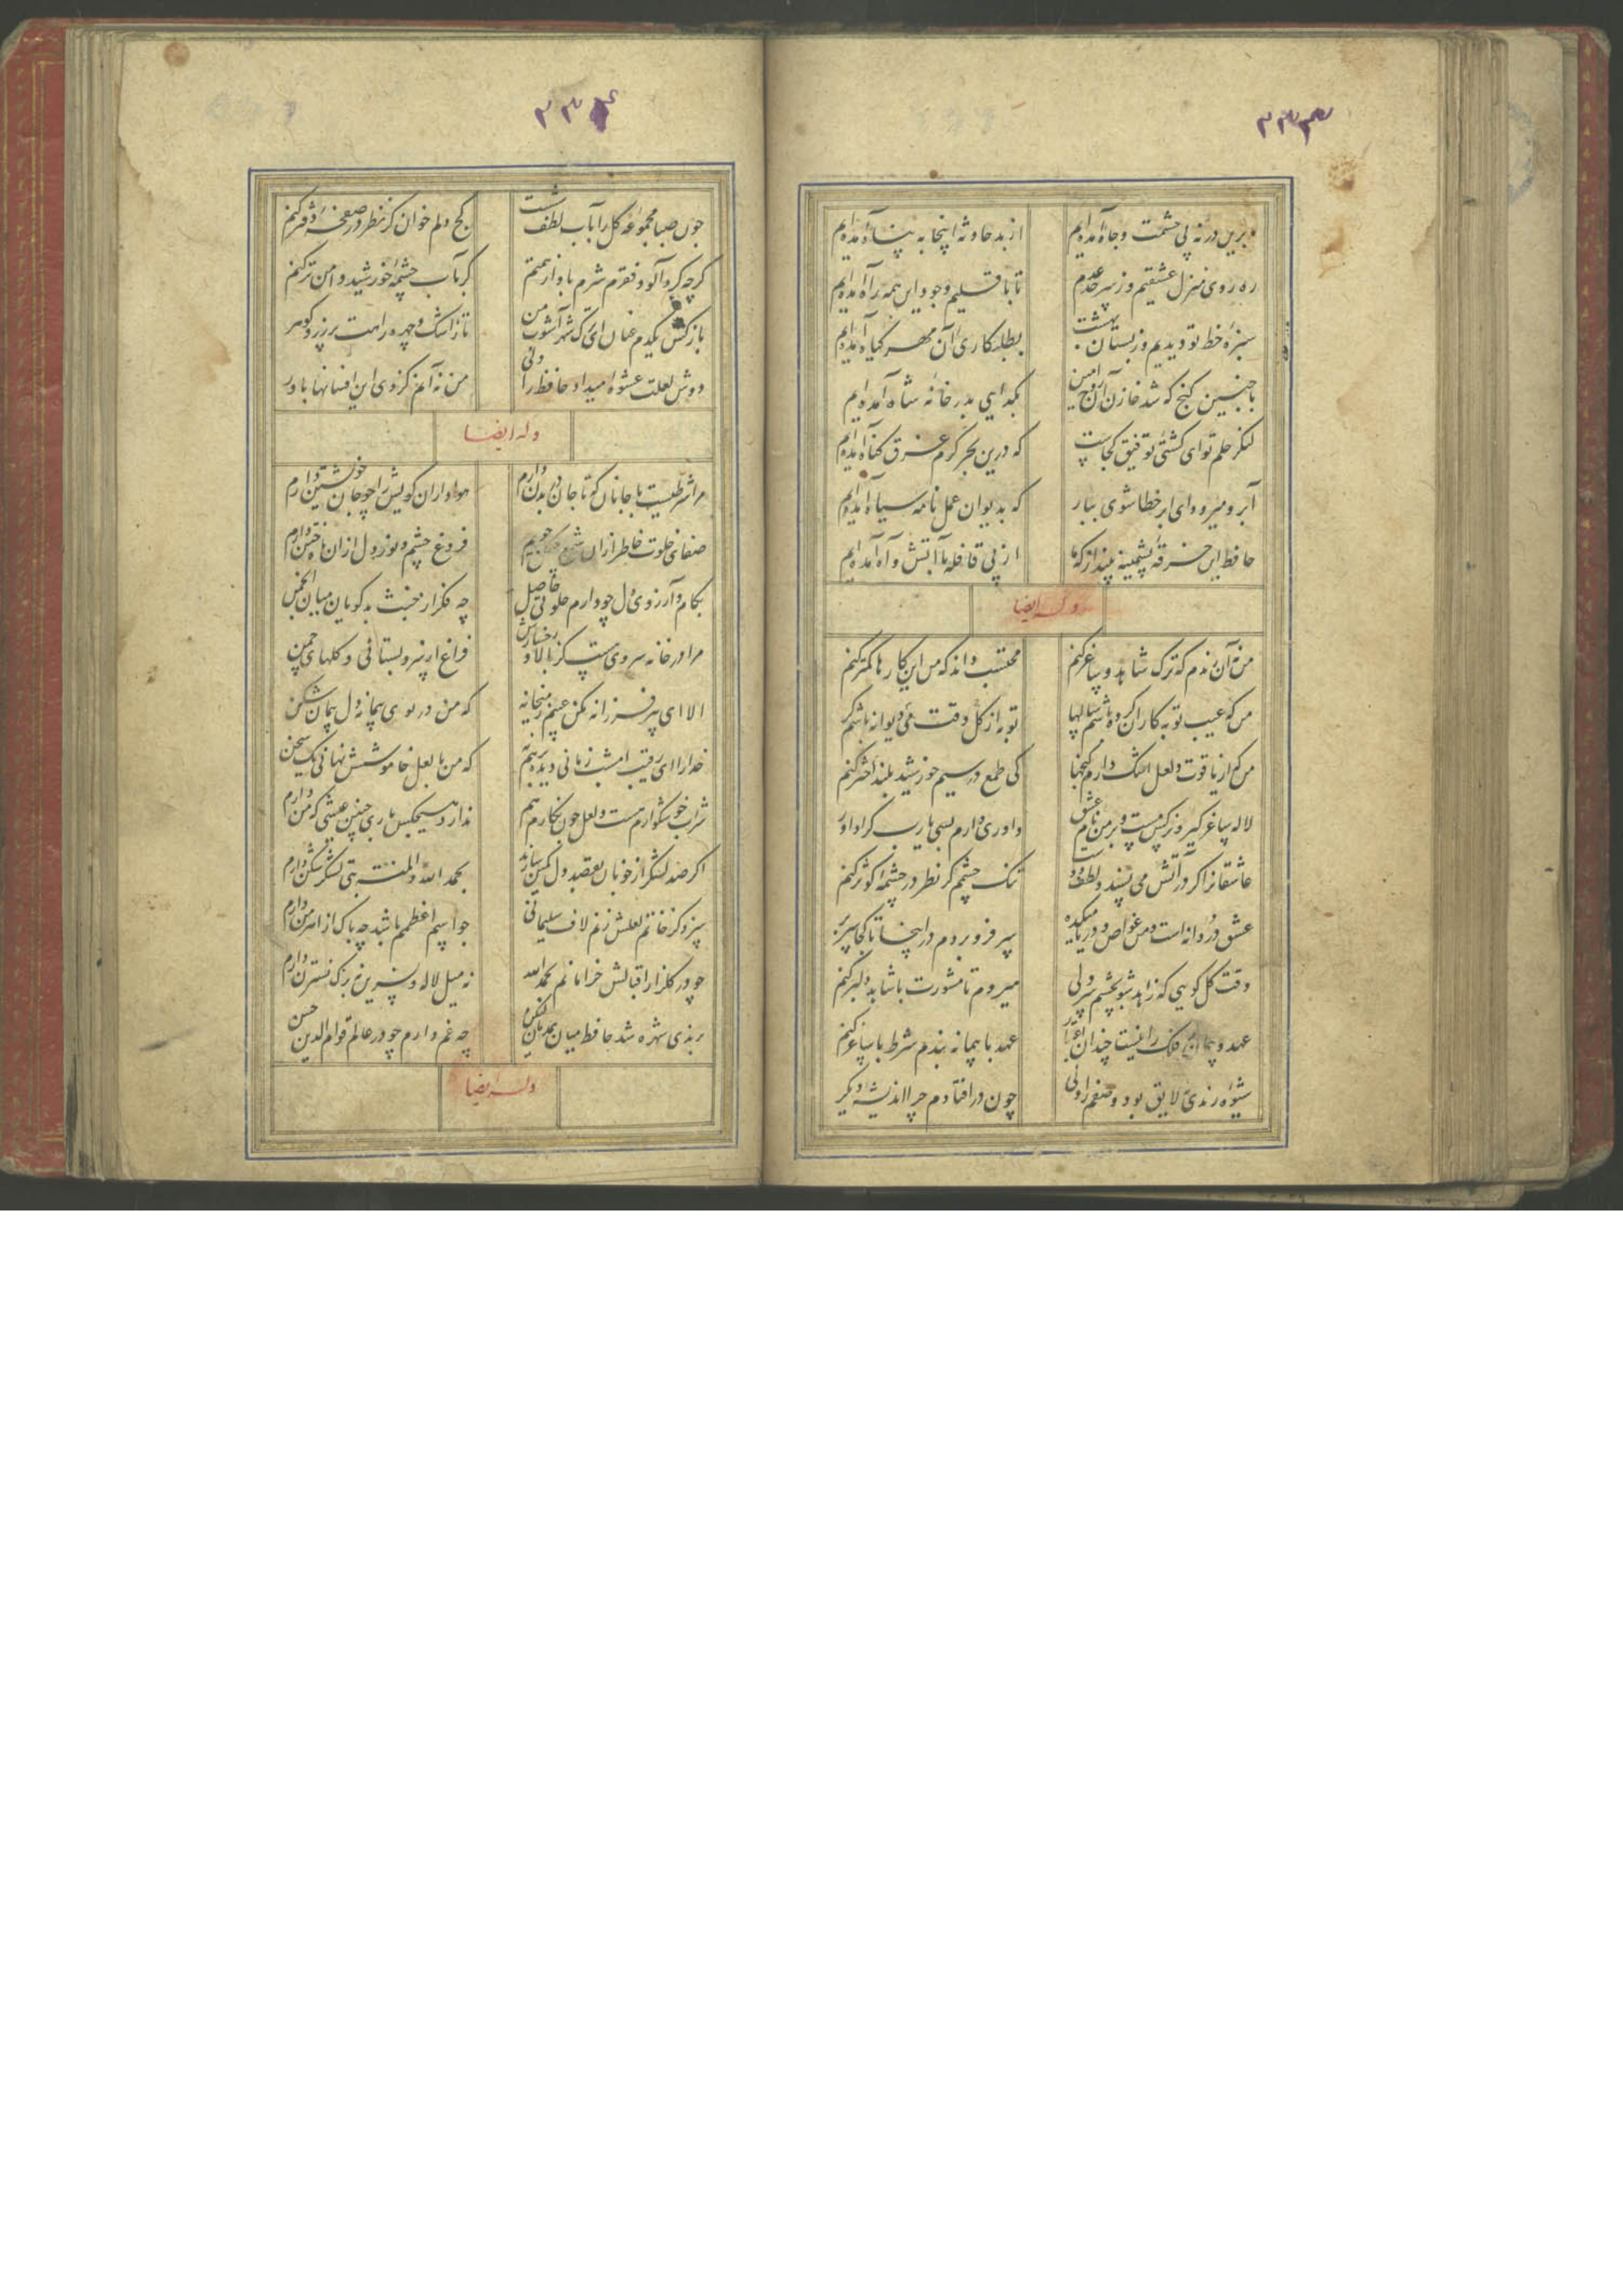 ۳۳۳
برین در نه پی حشمت و جاه آمده‌ایم از بد حادثه اینجا به پناه آمده‌ایم
ره روی منزل عشقیم وز سر حد عدم تا باقلیم وجود این همه راه آمده‌ایم
سبزه خط تو دیدیم وز بستان بهشت بطلبکاری آن مهر گیاه آمده‌ایم
با چنین گنج که شد خازن آن روح امین بگدایی بدر خانه شاه آمده‌ایم
لنگر حلم تو ای کشتی توفیق کجاست که درین بحر کرم غرق گناه آمده‌ایم
آبرو میرود ای ابر خطاشوی ببار که بدیوان عمل نامه سیاه آمده‌ایم
حافظ این خرقه پشمینه بینداز که ما از پی قافله با آتش و آه آمده‌ایم
وله ایضا
من نه آن رندم که ترک شاهد و ساغر کنم محتسب داند که من این کارها کمتر کنم
من که عیب توبه کاران کرده باشم سالها توبه از گل وقت می دیوانه باشم گر
من که از یاقوت و لعل اشک دارم گنجها کی طمع در سیم خورشید بلند اختر کنم
لاله ساغر گیر و نرگس مست و بر من نام عشق داوری دارم بسی یارب کرا داور
عاشقانرا گر در آتش می پسندد لطف دوست تنک چشمم گر نظر در چشمه کوثر کنم
عشق دردانه است و من غواص و دریا میکده سر فرو بردم در اینجا تا کجا سر بر
وقت گل کویی که زاهد شو بچشم و سر ولی میروم تا مشورت با شاهد و دلبر کنم
عهد و پیمان فلک را نیست چندان اعتبار عهد با پیمانه بندم شرط با ساغر کنم
شیوه رندی لایق بود وضعم را ولی چون در افتادم چرا اندیشه دیگر
۳۳۴
چون صبا مجموعه گل را بآب لطف شست کج دلم خوان گر نظر در صفحه دفتر کنم
گرچه گرد آلود فقرم شرم باد از همتم گر بآب چشمه خورشید دامن تر کنم
باز کش یکدم عنان ای ترک شهر آشوب من تا ز اشک و چهره راهت پر زر و گوهر
دوش لعلت عشوه میداد حافظ را ولی من نه آنم کز وی این افسانها باور
وله ایضا
مرا شرطیست با جانان که تا جان در بدن دارم هواداران کویش را چو جان خویشتن دارم
صفای خلوت خاطر از آن شمع چگل جویم فروغ چشم و نور دل از آن ماه ختن دارم
بکام و آرزوی دل چو دارم خلوتی حاصل چه فکر از خبث بدگویان میان انجمن
مرا در خانه سروی هست کز بالا و رخسارش فراغ از سرو بستانی و گلهای چمن
الا ای پیر فرزانه مکن عیبم ز میخانه که من در بوی پیمانه دل پیمان شکن
خدارا ای رقیب امشب زمانی دیده بر هم نه که من با لعل خاموشش نهانی یک سخن
شراب خوشگوارم هست و لعل چون نگارم هم ندارد هیچکس باری چنین عیشی که من دارم
اگر صد لشکر از خوبان بقصد دل کمین سازند بحمد الله و المنه بتی لشکر شکن دارم
سزد کز خاتم لعلش زنم لاف سلیمانی چو اسم اعظمم باشد چه باک از اهرمن دارم
چو در گلزار اقبالش خرامانم بحمد الله نه میل لاله و نسرین نه برگ نسترن دارم
برندی شهره شد حافظ میان همدمان لیکن چه غم دارم چو در عالم قوام الدین حسن
وله ایضا